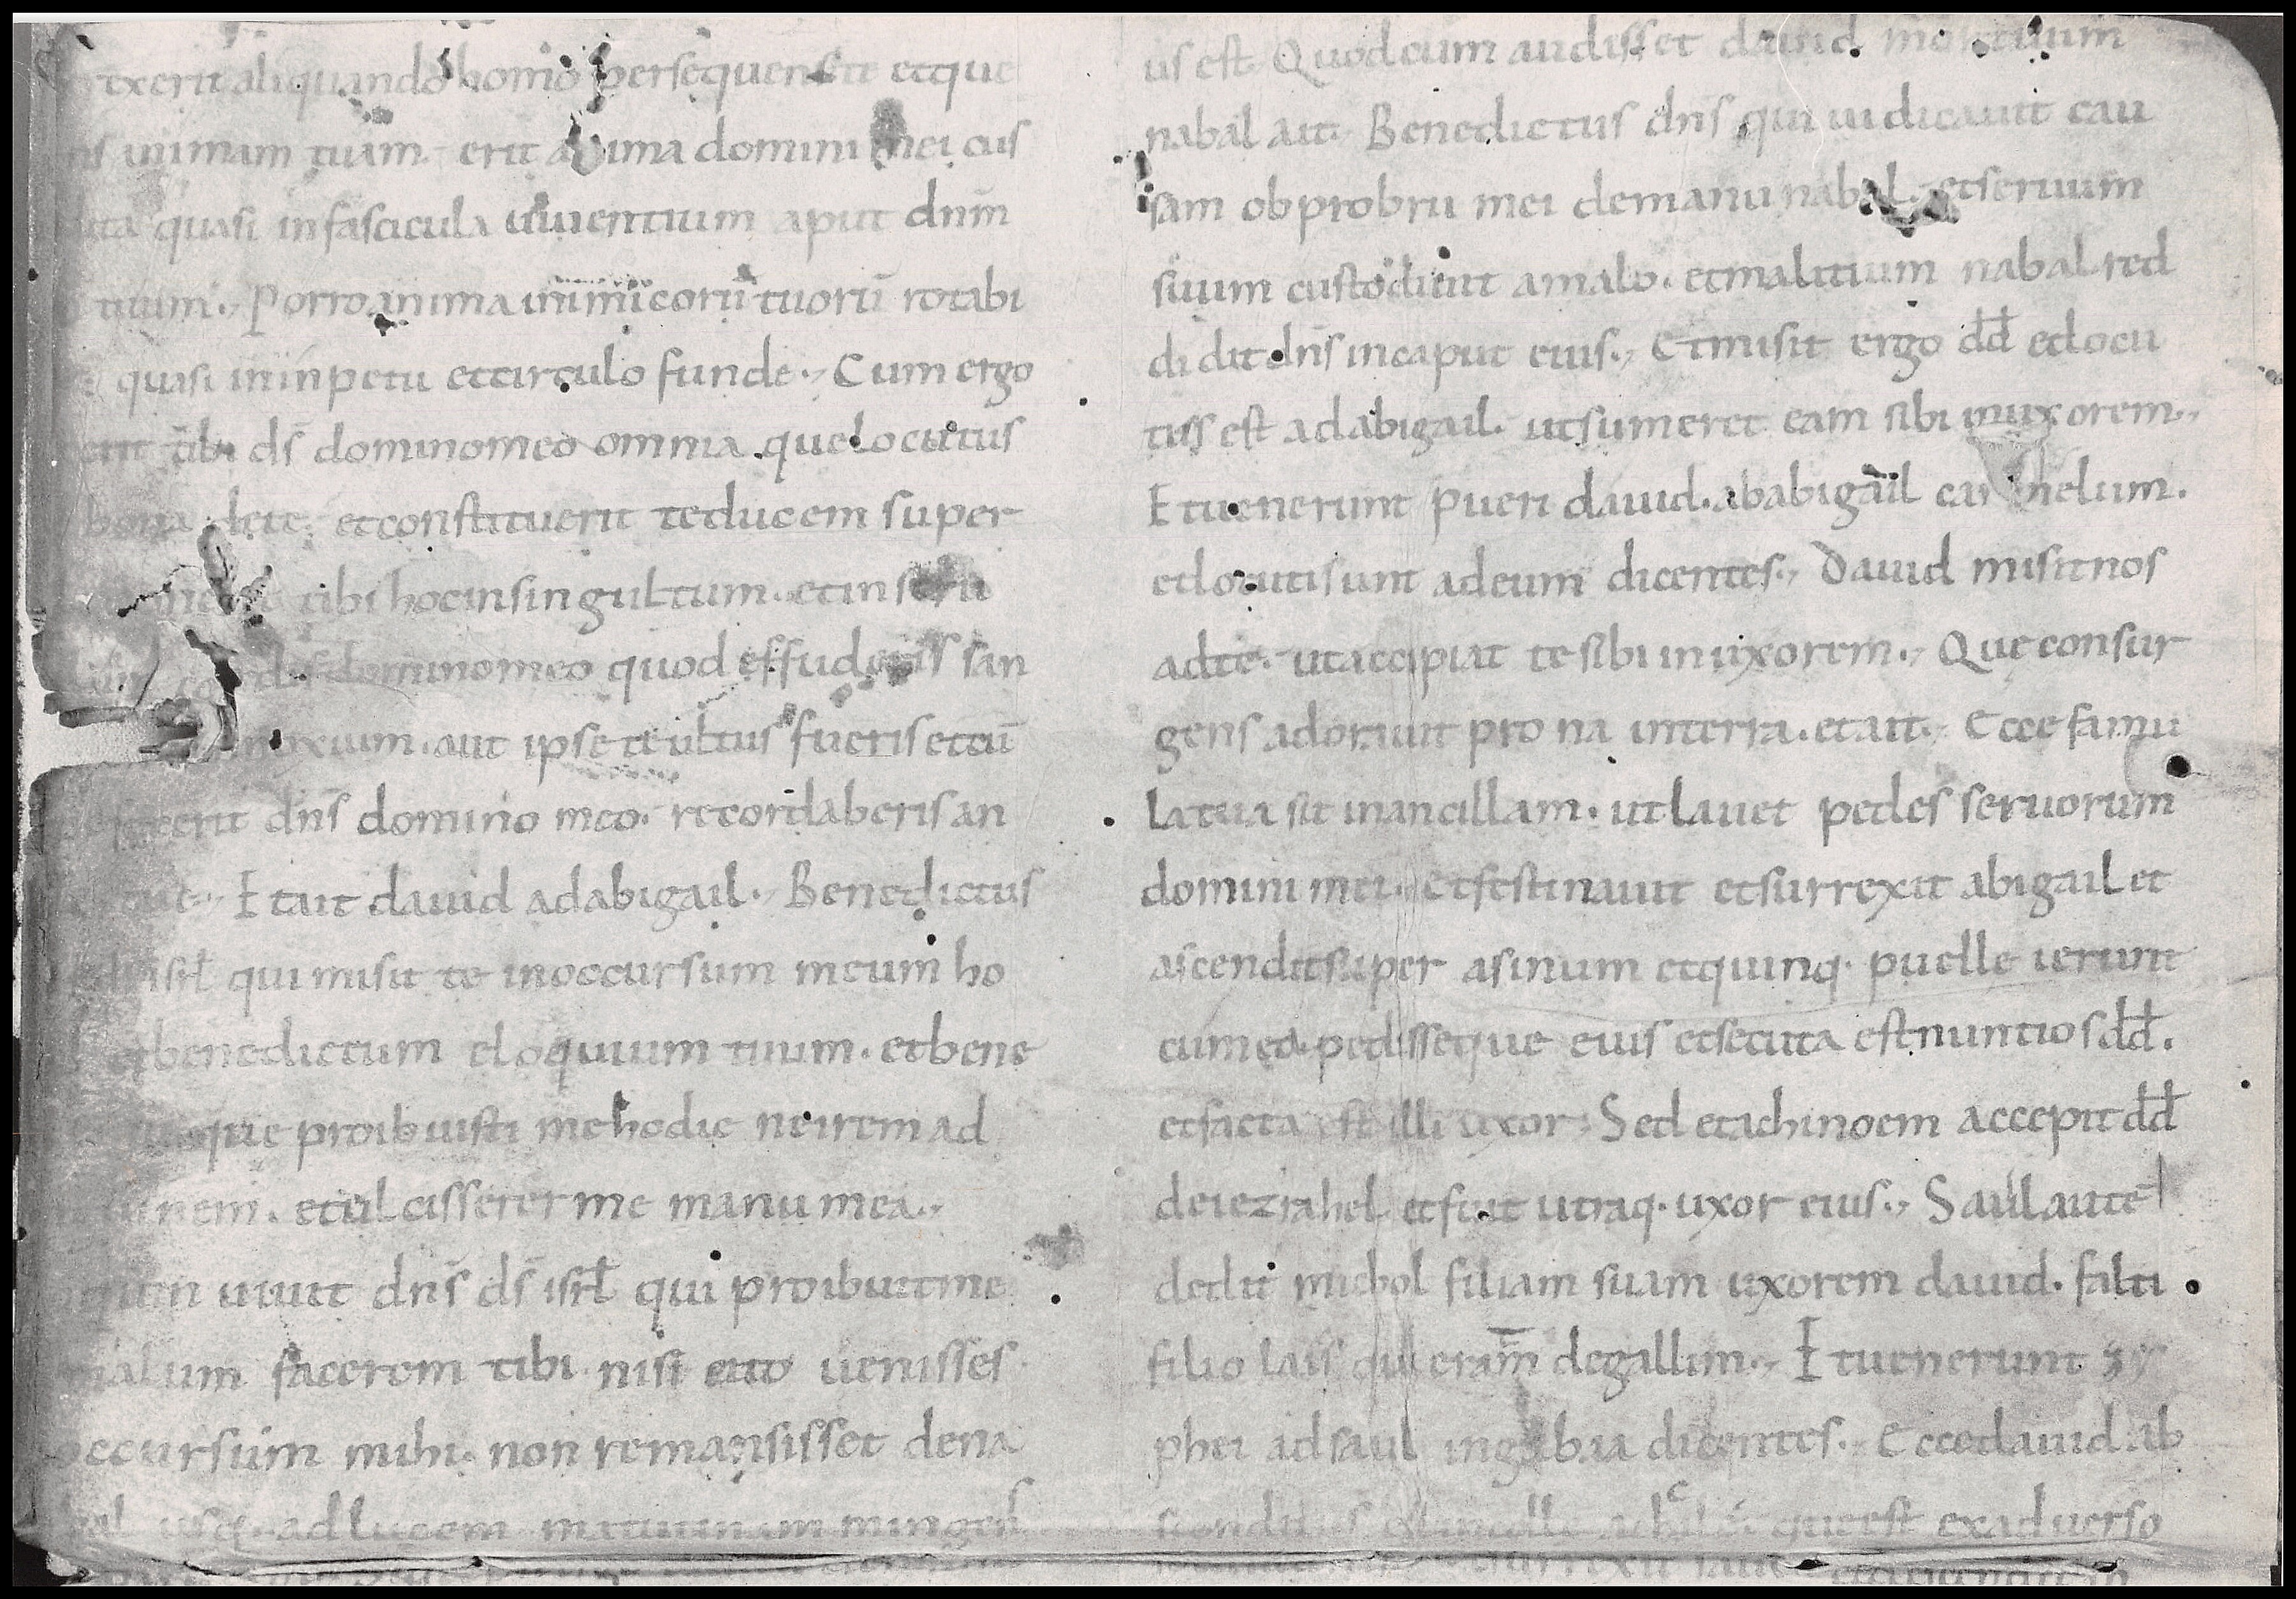 rexerit aliquando homo persequens te et que
animam tuam. erit anima domini mei cus
quasi in fascicula uiuentium aput dnm̄
tuum. Porro anima inimicorū tuorū rotabi
quasi in inpetu et circulo funde. Cum ergo
tibi ds̄ domino meo omnia que locutus
bona de te. et constituerit te ducem super
tibi hoc in singultum. et in scru
domino meo quod effuderis san
noxium. aut ipse te ultus fueris et cū
dns̄ domino meo. recordaberis an
tue. Et ait dauid ad abigail. Benedictus
isrl̄ qui misit te in occursum meum ho
et benedictum eloquium tuum. et bene
que proibuisti me hodie ne irem ad
nem. et ulcisserer me manu mea.
uiuit dns̄ ds̄ isrl̄ qui proibuit me
malum facerem tibi nisi cito uenisses
occursum mihi. non remansisset de na
bal usq. ad lucem matutinam mingens
us est. Quod cum audisset dauid mortuum
nabal ait. Benedictus dns̄ qui iudicauit cau
sam obprobrii mei de manu nabal. et seruum
suum custodiuit a malo. et malitium nabal red
didit dns̄ in caput eius. Et misit ergo dd̄ et locu
tus est ad abigail. ut sumeret eam sibi in uxorem.
Et uenerunt pueri dauid. ab abigail car melum.
et locuti sunt ad eum dicentes. Dauid misit nos
ad te. ut accipiat te sibi in uxorem. Que consur
gens adorauit prona in terra. et ait. Ecce famu
la tua sit in ancillam. ut lauet pedes seruorum
domini mei. et festinauit et surrexit abigail et
ascendit super asinum et quinq. puelle ierunt
cum ea. pedisseque eius et secuta est nuntios dd̄.
et facta est illi uxor. Sed et achinoem accepit dd̄
de iezrahel. et fuit utraq. uxor eius. Saul autē
dedit micbol filiam suam uxorem dauid. falti
filio lais qui eram̄ de gallim. Et uenerunt zy
phei ad saul in gabaa dicentes. Ecce dauid ab
que est ex aduerso